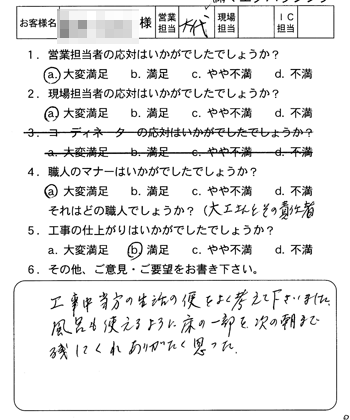 お客様名 様 営業担当 大代 現場担当 ＩＣ担当
１．営業担当者の応対はいかがでしたでしょうか？
a. 大変満足 b. 満足 c. やや不満 d. 不満
２．現場担当者の応対はいかがでしたでしょうか？
a. 大変満足 b. 満足 c. やや不満 d. 不満
３．コーディネーターの応対はいかがでしたでしょうか？
a. 大変満足 b. 満足 c. やや不満 d. 不満
４．職人のマナーはいかがでしたでしょうか？
a. 大変満足 b. 満足 c. やや不満 d. 不満
それはどの職人でしょうか？（大工さんとその責任者
５．工事の仕上がりはいかがでしたでしょうか？
a. 大変満足 b. 満足 c. やや不満 d. 不満
６．その他、ご意見・ご要望をお書き下さい。
工事中当方の生活の便をよく考えて下さいました。
風呂も使えるように床の一部を次の朝まで
残してくれありがたく思った。